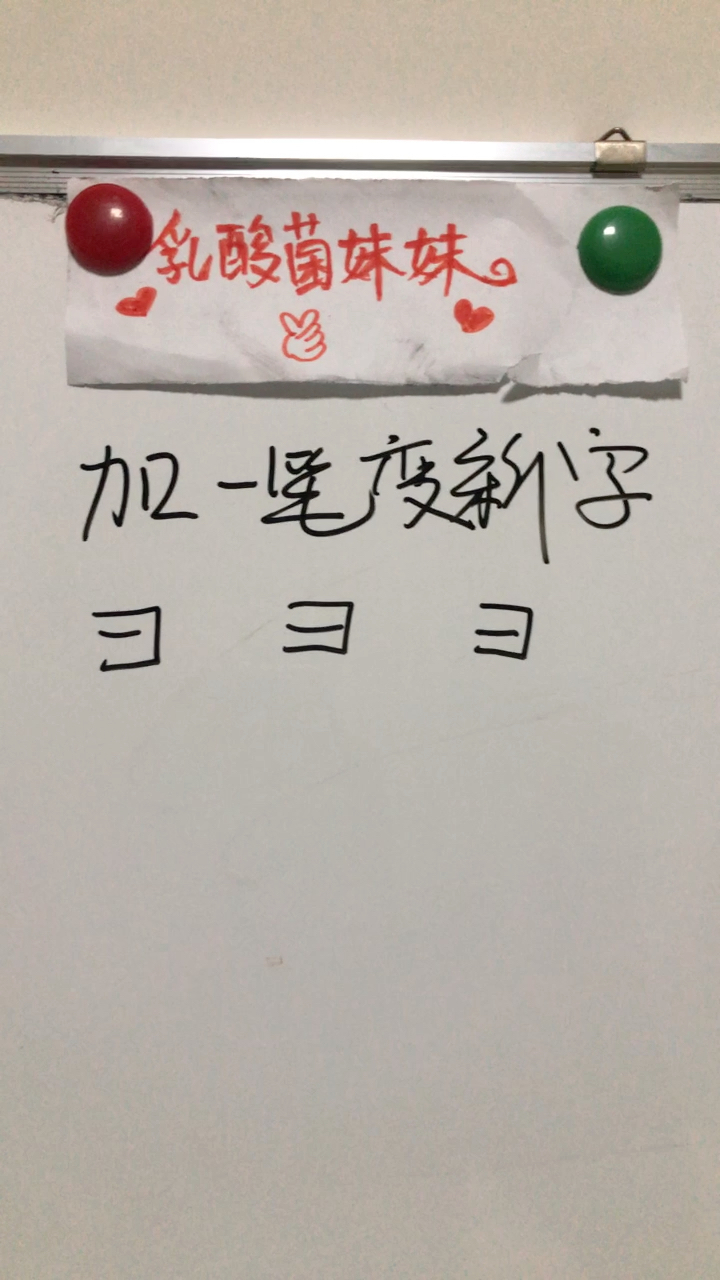 乳酸菌妹妹
加一笔变新字
彐 彐 彐